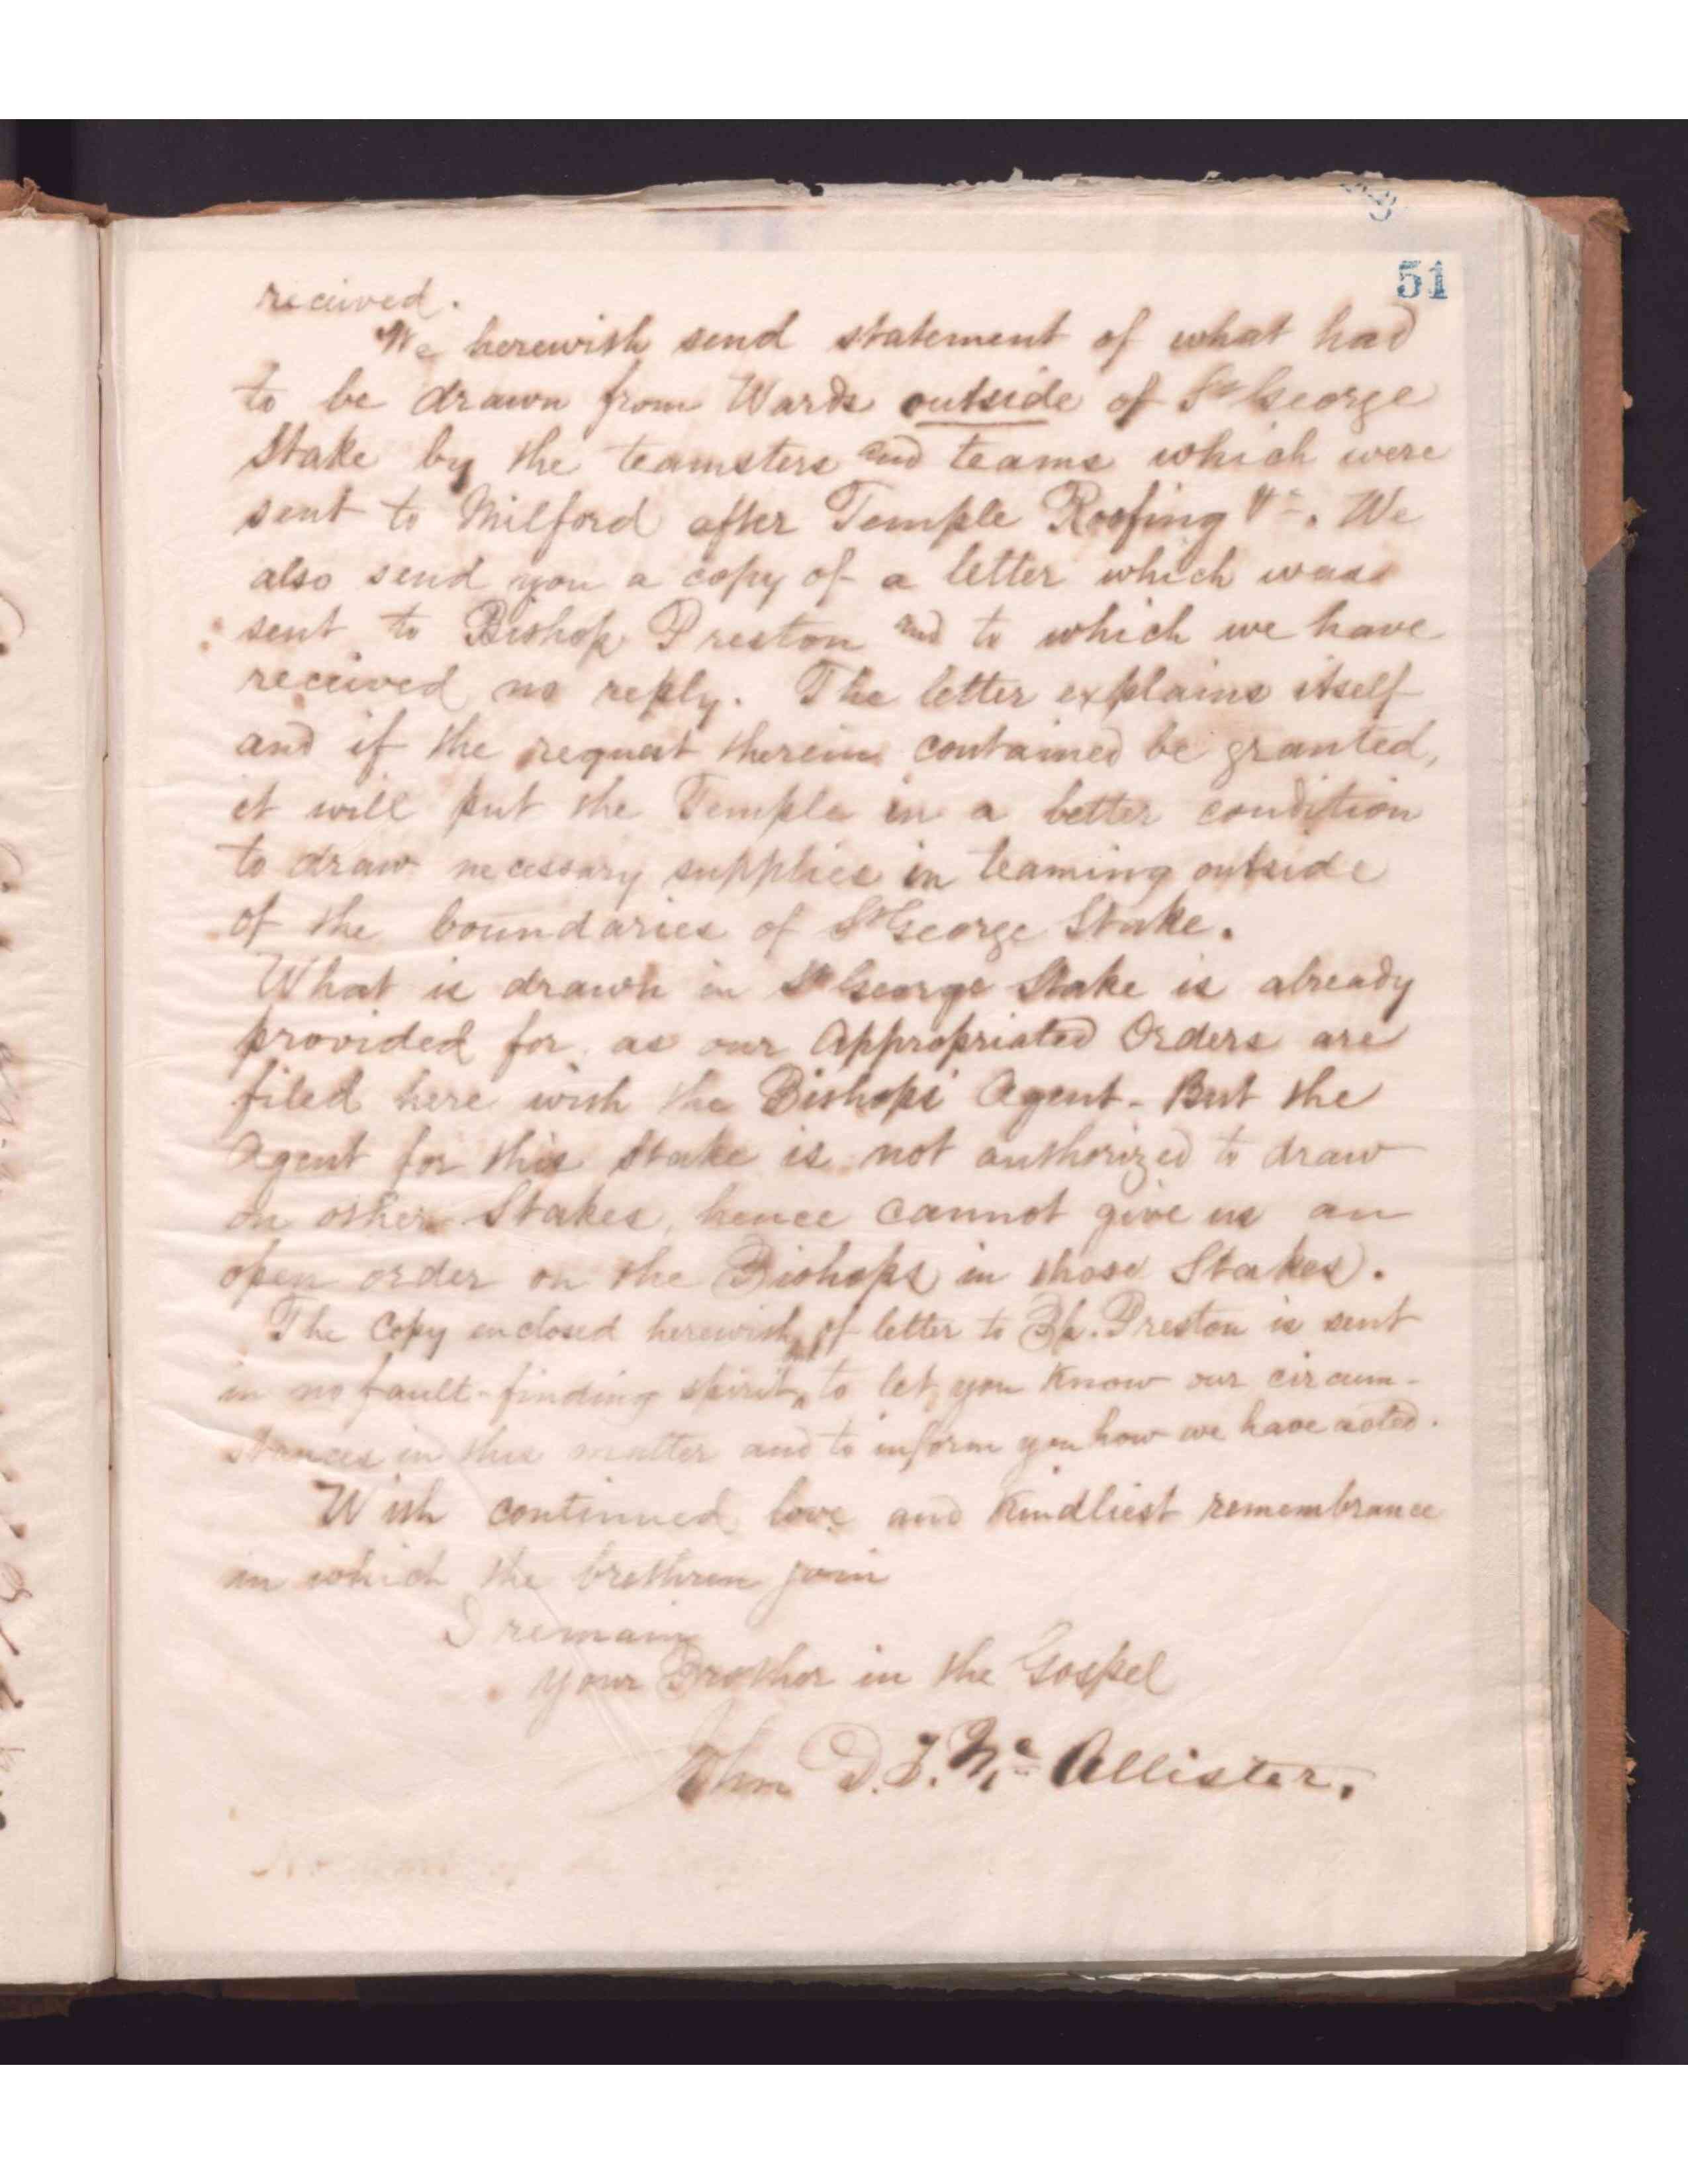 51
received.
We herewith send statement of what had
to be drawn from Wards outside of St George
Stake by the teamsters and teams which were
sent to Milford after Temple Roofing &c. We
also send you a copy of a letter which was
sent to Bishop Preston and to which we have
received no reply. The letter explains itself
and if the request therein contained be granted,
it will put the Temple in a better condition
to draw necessary supplies in teaming outside
of the boundaries of St George Stake.
What is drawn in St George Stake is already
provided for as our Appropriated Orders are
filed here with the Bishops Agent - But the
Agent for this Stake is not authorized to draw
on other Stakes, hence cannot give us an
open order on the Bishops in those Stakes.
The Copy enclosed herewith, of letter to Bp. Preston is sent
in no fault-finding spirit, to let you Know our circum-
stances in this matter and to inform you how we have acted.
With continued love and Kindliest remembrance
in which the brethren join
I remain
your Brother in the Gospel
John D. T. Mc Allister.